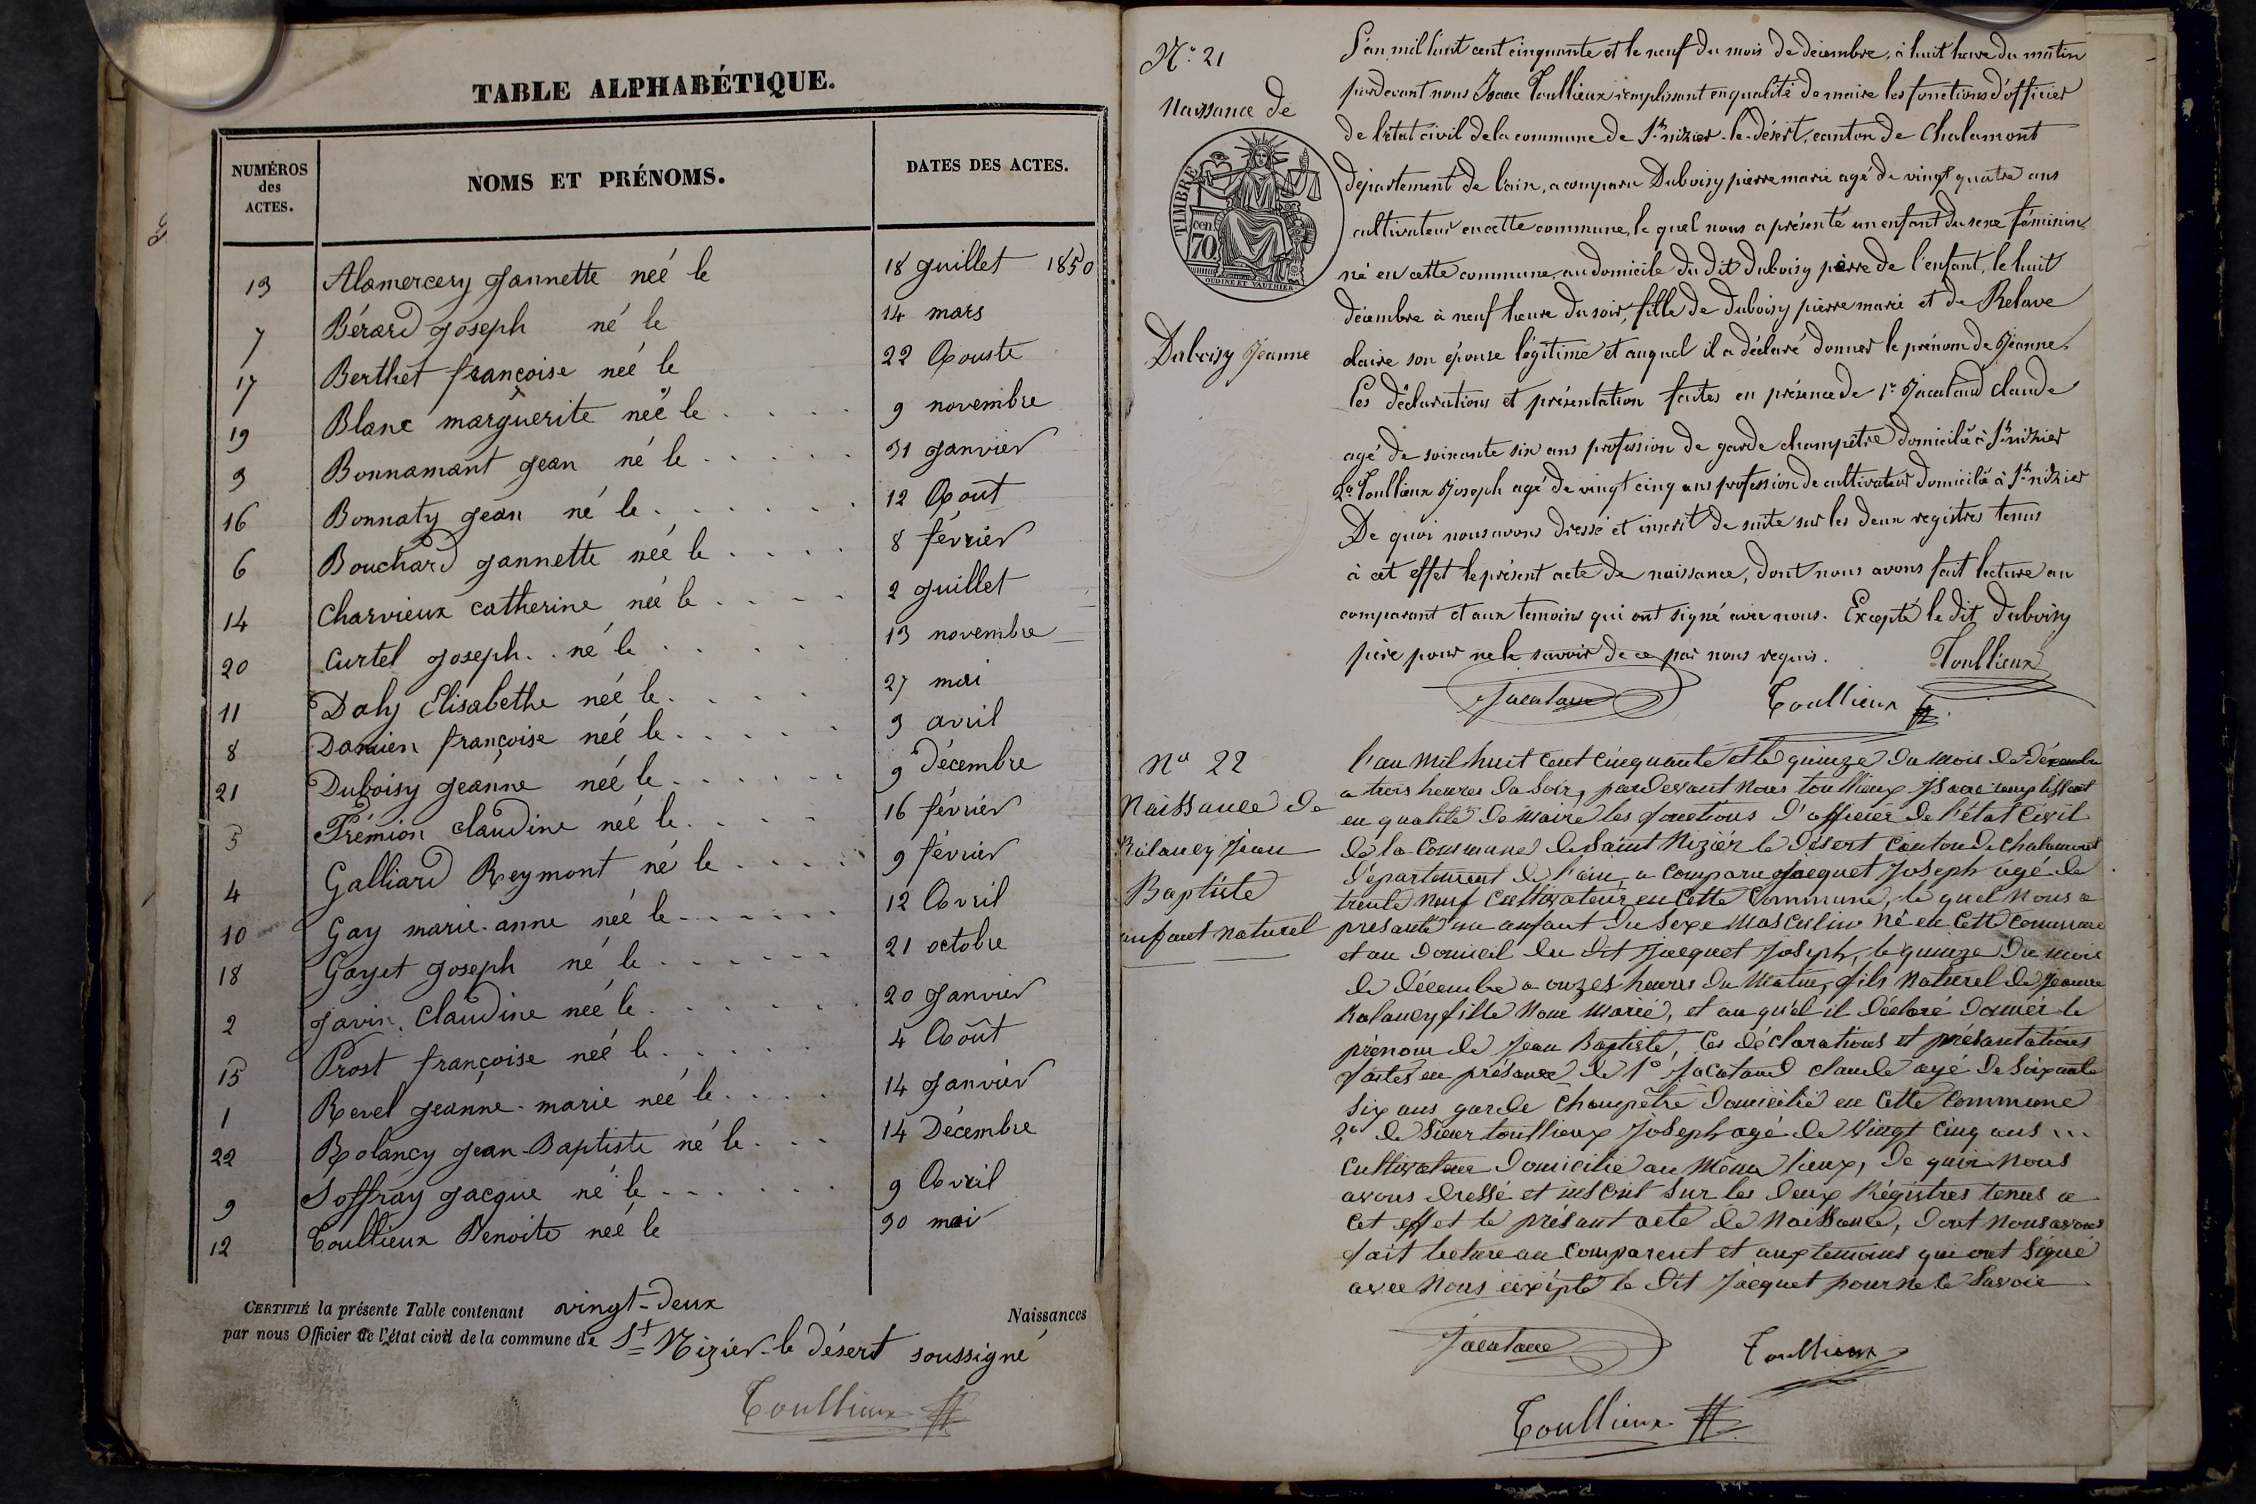 TABLE ALPHABÉTIQUE.
NUMÉROS des ACTES.
NOMS ET PRÉNOMS.
DATES DES ACTES.
13 Alamercery Jannette neé le 18 Juillet 1850
7 Bérard Joseph né le 14 mars
17 Berthet françoise neé le 22 Aouste
19 Blanc marguerite neé le 9 novembre
3 Bonnamant Jean né le 31 Janvier
16 Bonnaty Jean né le 12 Août
6 Bouchard Jannette neé le 8 février
14 Charvieux Catherine neé le 2 Juillet
20 Curtel Joseph né le 13 novembre
11 Daly Elisabethe neé le 27 mai
8 Damien françoise neé le 3 avril
21 Duboisy Jeanne neé le 9 Décembre
5 Frémion Claudine neé le 16 février
4 Galliard Reymont né le 9 février
10 Gay marie-anne neé le 12 Avril
18 Gayet Joseph né le 21 octobre
2 Javin Claudine neé le 20 Janvier
15 Prost françoise neé le 4 Août
1 Revel Jeanne-marie neé le 14 Janvier
22 Rolancy Jean-Baptiste né le 14 Décembre
9 Soffray Jacque né le 9 Avril
12 Toullieux Benoite neé le 30 mai
CERTIFIÉ la présente Table contenant vingt-deux Naissances
par nous Officier de l'état civil de la commune de St Nizier-le désert soussigné
Toullieux
N° 21
Naissance de
TIMBRE
70 cen.
OUDINÉ ET VAUTHIER
Duboisy Jeanne
L'an mil huit cent cinquante et le neuf du mois de décembre, à huit heure du matin
pardevant nous Isaac Toullieux remplissant en qualité de maire les fonctions d'officier
de l'état civil de la commune de St nizier-le-désert, canton de Chalamont
département de l'ain, a comparu Duboisy pierre marie agé de vingt quatre ans
cultivateur en cette commune, le quel nous a présenté un enfant du sexe féminin
né en cette commune, au domicile du dit duboisy père de l'enfant, le huit
décembre à neuf heure du soir, fille de duboisy pierre marie et de Relave
claire son épouse légitime et auquel il a déclaré donner le prénom de Jeanne.
Les déclarations et présentation faites en présence de 1° Jacataud claude
agé de soixante six ans profession de garde champêtre domicilié à St nizier
2° Toullieux Joseph agé de vingt cinq ans profession de cultivateur domicilié à St nizier
De quoi nous avons dressé et inscrit de suite sur les deux registres tenus
à cet effet le présent acte de naissance, dont nous avons fait lecture au
comparant et aux temoins qui ont signé avec nous. Excepté le dit duboisy
père pour ne le savoir de ce par nous requis.
Toullieux
Jacataud
Toullieux
N° 22
Naissance de
Rolancy Jean
Baptiste
enfant naturel
l'an mil huit cent cinquante et le quinze du mois de décembre
a trois heures du soir, pardevant nous toullieux Isaac remplissant
en qualité de maire les fonctions d'officier de l'état civil
de la commune de Saint Nizier le désert canton de chalamont
département de l'ain, a comparu Jacquet Joseph agé de
trente neuf cultivateur en cette commune, le quel nous a
présanté un anfant du sexe masculin né en cette commune
et au domicil du dit Jacquet Joseph, le quinze du mois
de décembre a onzes heures du matin, fils naturel de Jeanne
Rolancy fille non marié, et au quel il déclaré donner le
prénom de Jean Baptiste, les déclarations et présantations
faites en présance de 1° Jacataud claude agé de soixante
six ans garde champêtre domicilié en cette commune
2° de sieur toullieux Joseph agé de vingt cinq ans ...
cultivateur domicilié au même lieux, de quoi nous
avons dressé et inscrit sur les deux Régistres tenus a
cet effet le présant acte de naissance, dont nous avons
fait lecture au comparent et aux temoins qui ont signé
avec nous excépté le dit Jacquet pour ne le savoir
Jacataud
Toullieux
Toullieux